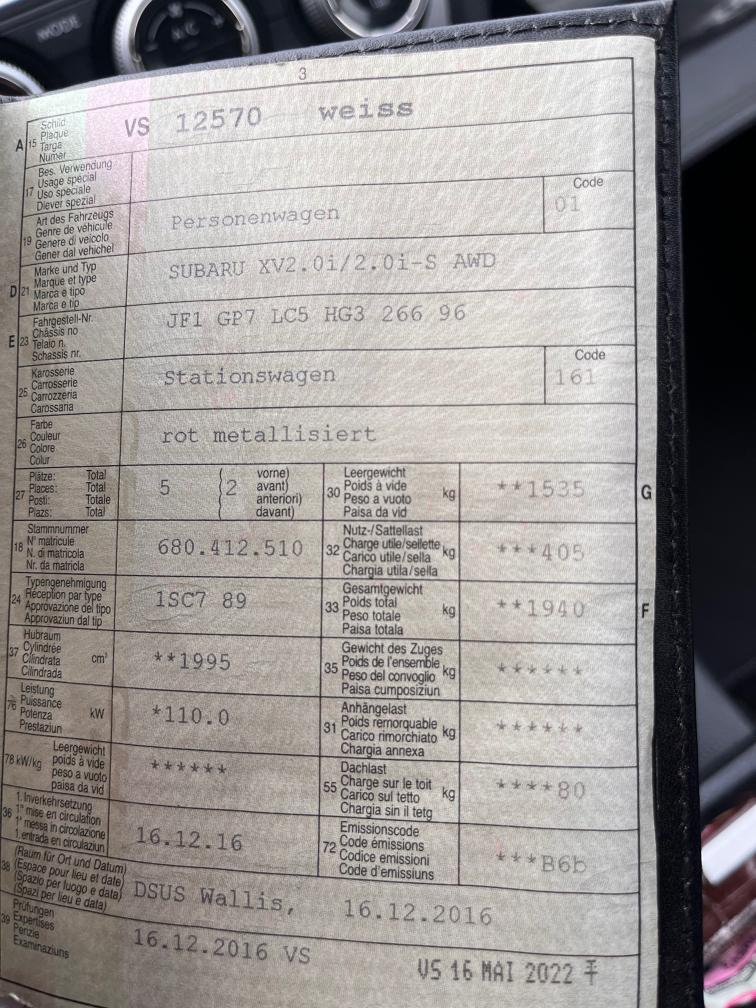 MODE
A/C
3
A 15 Schild Plaque Targa Numer VS 12570 weiss
17 Bes. Verwendung Usage spécial Uso speciale Diever spezial
19 Art des Fahrzeugs Genre de véhicule Genere di veicolo Gener dal vehichel Personenwagen Code 01
D 21 Marke und Typ Marque et type Marca e tipo Marca e tip SUBARU XV2.0i/2.0i-S AWD
E 23 Fahrgestell-Nr. Châssis no Telaio n. Schassis nr. JF1 GP7 LC5 HG3 266 96
25 Karosserie Carrosserie Carrozzeria Carossaria Stationswagen Code 161
26 Farbe Couleur Colore Colur rot metallisiert
27 Plätze: Total Places: Total Posti: Totale Plazs: Total 5 (2 vorne) avant) anteriori) davant)
30 Leergewicht Poids à vide Peso a vuoto Paisa da vid kg **1535 G
18 Stammnummer N° matricule N. di matricola Nr. da matricla 680.412.510
32 Nutz-/Sattellast Charge utile/sellette Carico utile/sella Chargia utila/sella kg ***405
24 Typengenehmigung Réception par type Approvazione del tipo Approvaziun dal tip 1SC7 89
33 Gesamtgewicht Poids total Peso totale Paisa totala kg **1940 F
37 Hubraum Cylindrée Cilindrata Cilindrada cm³ **1995
35 Gewicht des Zuges Poids de l'ensemble Peso del convoglio Paisa cumposiziun kg ******
76 Leistung Puissance Potenza Prestaziun kW *110.0
31 Anhängelast Poids remorquable Carico rimorchiato Chargia annexa kg ******
78 kW/kg Leergewicht poids à vide peso a vuoto paisa da vid ******
55 Dachlast Charge sur le toit Carico sul tetto Chargia sin il tetg kg ****80
36 1. Inverkehrsetzung 1re mise en circulation 1a messa in circolazione 1. entrada en circulaziun 16.12.16
72 Emissionscode Code émissions Codice emissioni Code d'emissiuns ***B6b
38 (Raum für Ort und Datum) (Espace pour lieu et date) (Spazio per luogo e data) (Spazi per lieu e data) DSUS Wallis, 16.12.2016
39 Prüfungen Expertises Perizie Examinaziuns 16.12.2016 VS VS 16 MAI 2022